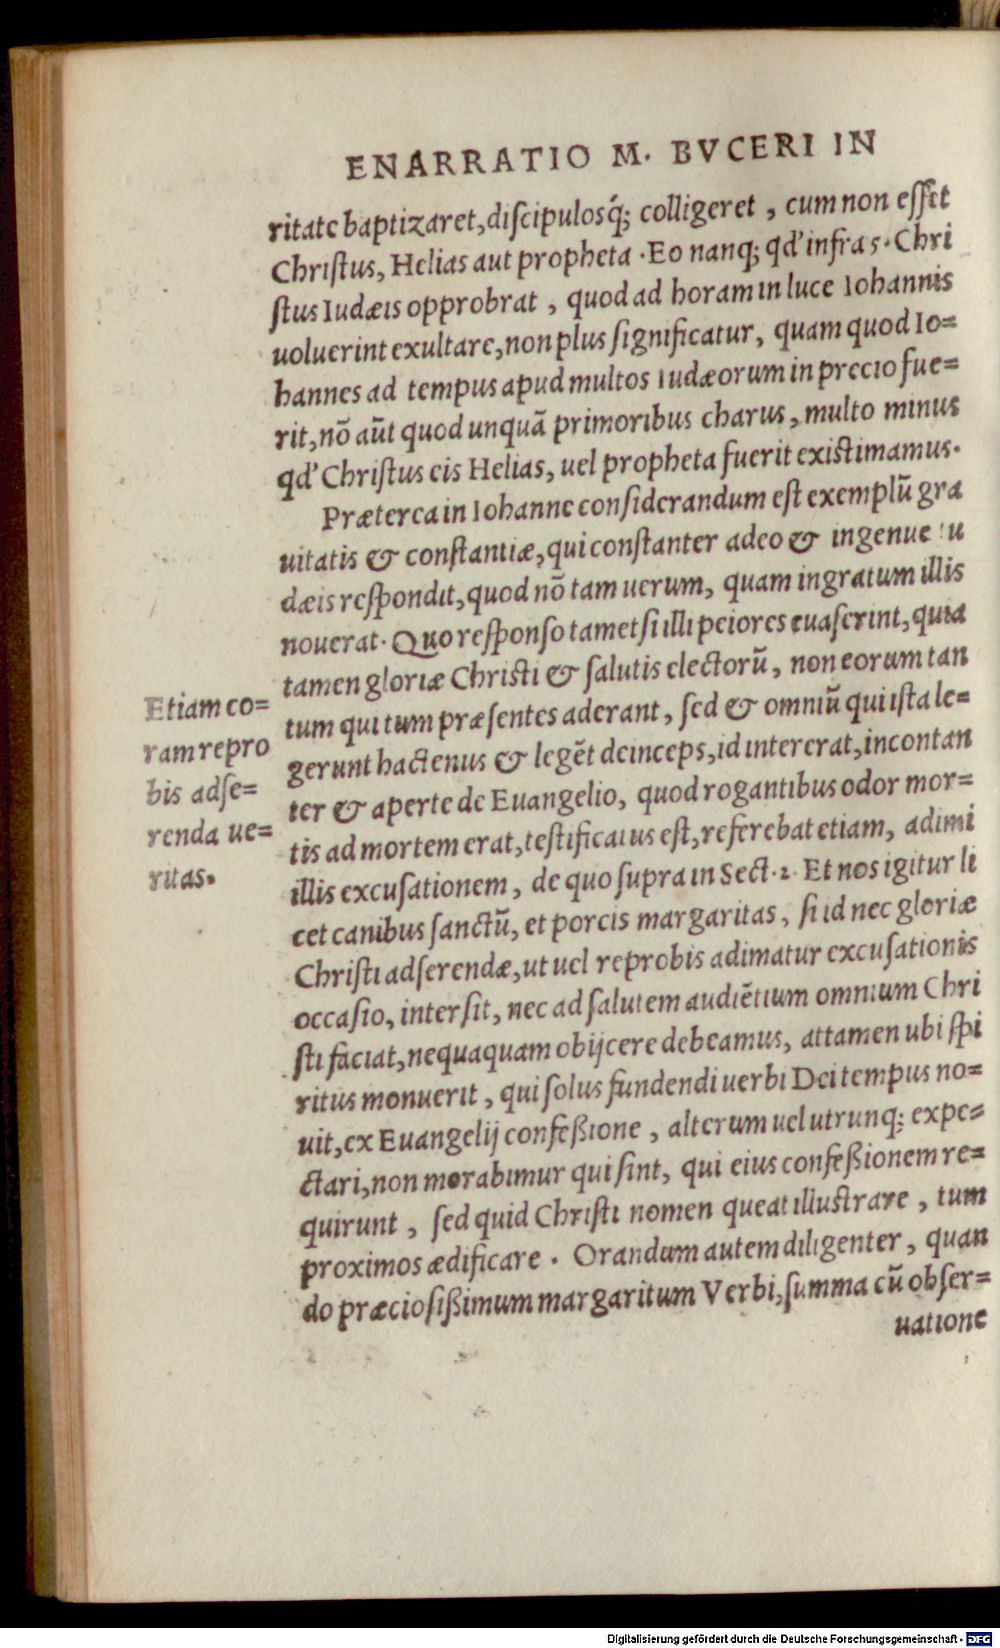 ENARRATIO M. BVCERI IN
ritate baptizaret, diſcipulosq́; colligeret, cum non eſſet
Chriſtus, Helias aut propheta. Eo nanq; qd' infra 5. Chri
ſtus Iudæis opprobrat, quod ad horam in luce Iohannis
uoluerint exultare, non plus ſignificatur, quam quod Io=
hannes ad tempus apud multos Iudæorum in precio fue=
rit, nõ aũt quod unquã primoribus charus, multo minus
qd' Chriſtus eis Helias, uel propheta fuerit existimamus.
Præterea in Iohanne conſiderandum eſt exemplũ gra
uitatis & conſtantiæ, qui conſtanter adeo & ingenue Iu
dæis reſpondit, quod nõ tam uerum, quam ingratum illis
nouerat. Quo reſponſo tametſi illi peiores euaſerint, quia
tamen gloriæ Chriſti & ſalutis electorũ, non eorum tan
tum qui tum præſentes aderant, ſed & omniũ qui iſta le=
gerunt hactenus & legẽt deinceps, id intererat, incontan
ter & aperte de Euangelio, quod rogantibus odor mor=
tis ad mortem erat, teſtificatus eſt, referebat etiam, adimi
illis excuſationem, de quo ſupra in Sect. 2. Et nos igitur li
cet canibus ſanctũ, et porcis margaritas, ſi id nec gloriæ
Chriſti adſerendæ, ut uel reprobis adimatur excuſationis
occaſio, inter ſit, nec ad ſalutem audiẽtium omnium Chri
ſti faciat, nequaquam obijcere debeamus, attamen ubi ſpi
ritus monuerit, qui ſolus fundendi uerbi Dei tempus no=
uit, ex Euangelij confeßione, alterum uel utrunq; expe=
ctari, non morabimur qui ſint, qui eius confeßionem re=
quirunt, ſed quid Chriſti nomen queat illuſtrare, tum
proximos ædificare. Orandum autem diligenter, quan
do præcioſißimum margaritum Verbi, ſumma cũ obſer=
uatione
Etiam co=
ram repro
bis adſe=
renda ue=
ritas.
Digitalisierung gefördert durch die Deutsche Forschungsgemeinschaft - DFG